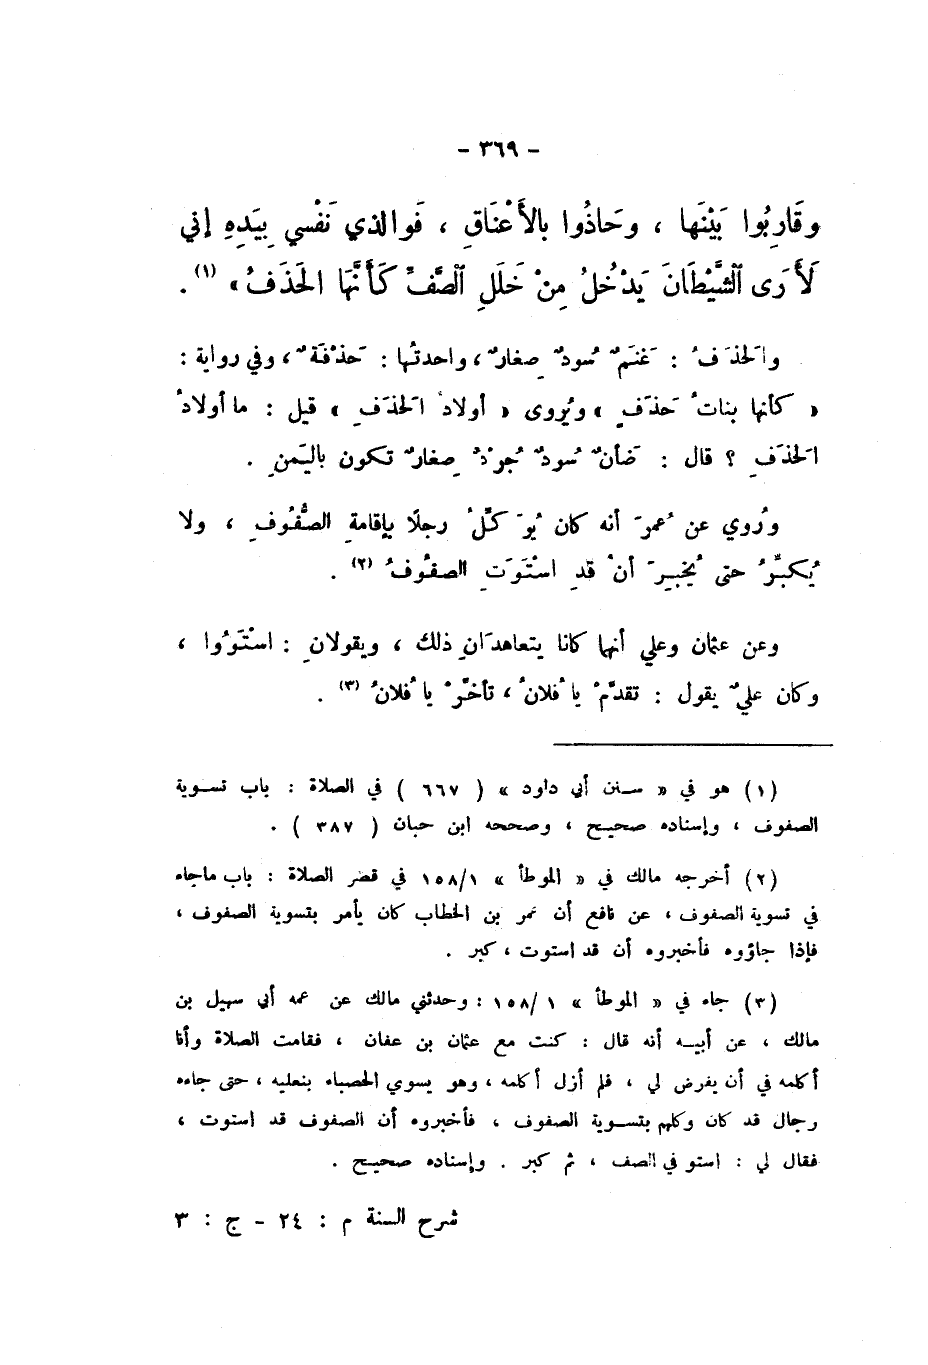 - ٣٦٩ -
وقَارِبُوا بَيْنَها ، وحَاذُوا بالأَعْنَاقِ ، فَوالذي نَفْسي بِيَدِهِ إني
لَأَرَى الشَّيْطَانَ يَدْخُلُ مِنْ خَلَلِ الصَّفِّ كَأَنَّهَا الحَذَفُ » (١) .
والحَذَفُ : غَنَمٌ سُودٌ صِغارٌ ، واحدتُها : حَذَفَةٌ ، وفي رواية :
« كأنها بناتُ حَذَفٍ » ويُروى « أولادُ الحَذَفِ » قيل : ما أولادُ
الحَذَفِ ؟ قال : ضَأنٌ سُودٌ جُردٌ صِغارٌ تكون باليَمنِ .
ورُوي عن عُمرَ أنه كان يُوَكِّلُ رجلًا بإقامةِ الصُّفُوفِ ، ولا
يُكبِّرُ حتى يُخبِرَ أنْ قدِ اسْتَوَتِ الصفُوفُ (٢) .
وعن عثمان وعلي أنهما كانا يتعاهدَانِ ذلك ، ويقولانِ : اسْتَوُوا ،
وكان عليٌ يقول : تقدَّمْ يا فُلانُ ، تأخَّرْ يا فُلانُ (٣) .
(١) هو في « سنن أبي داود » ( ٦٦٧ ) في الصلاة : باب تسوية
الصفوف ، وإسناده صحيح ، وصححه ابن حبان ( ٣٨٧ ) .
(٢) أخرجه مالك في « الموطأ » ١/١٥٨ في قصر الصلاة : باب ماجاء
في تسوية الصفوف ، عن نافع أن عمر بن الخطاب كان يأمر بتسوية الصفوف ،
فإذا جاؤوه فأخبروه أن قد استوت ، كبر .
(٣) جاء في « الموطأ » ١/١٥٨ : وحدثني مالك عن عمه أبي سهيل بن
مالك ، عن أبيه أنه قال : كنت مع عثمان بن عفان ، فقامت الصلاة وأنا
أكلمه في أن يفرض لي ، فلم أزل أكلمه ، وهو يسوي الحصباء بنعليه ، حتى جاءه
رجال قد كان وكلهم بتسوية الصفوف ، فأخبروه أن الصفوف قد استوت ،
فقال لي : استو في الصف ، ثم كبر . وإسناده صحيح .
شرح السنة م : ٢٤ - ج : ٣